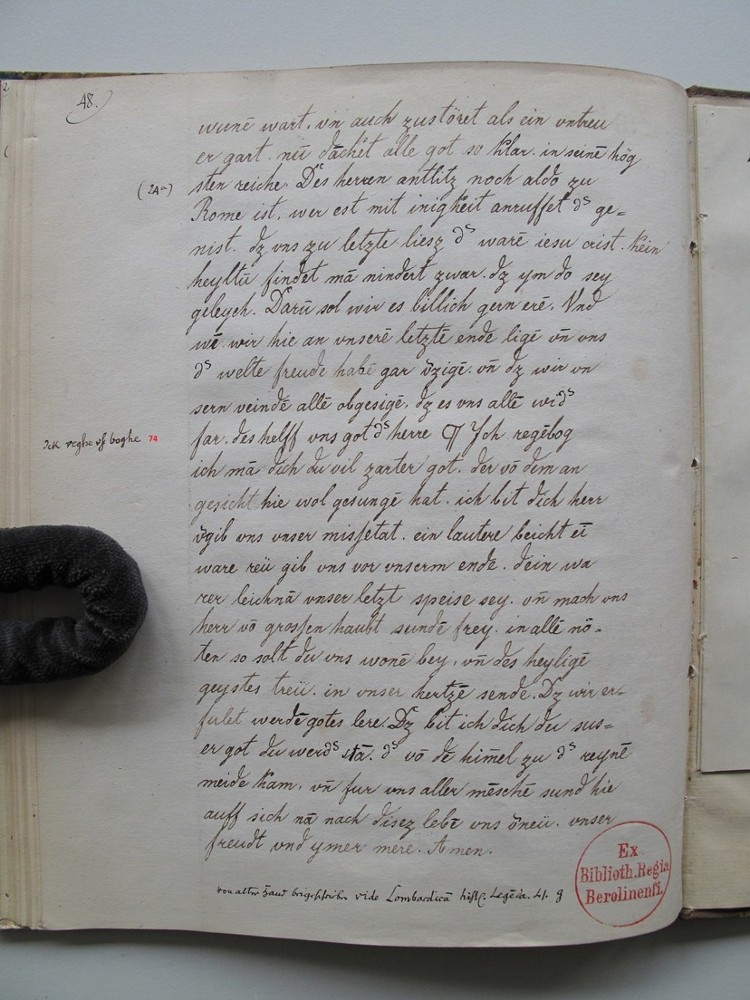 48.
wune wart. vn̄ auch zustöret als ein vntreu
er gart. nu dächet alle got so klar. in seinē hög
sten reiche. Des herren antlitz noch aldo zu
Rome ist. wer est mit inigkeit anruffet dˢ ge=
nist. dz vns zu letzte liesz dˢ warē iesu crist. kein
heyltū findet mā nindert zwar. dz ym do sey
geleych. Darū sol wir es billich gern erē. Vnd
wē wir hie an vnserē letztē ende ligē vn̄ vns
dˢ welte freude habē gar v̄zigē. vn̄ dz wir vn
sern veindē allē obgesigē. dz es vns allē widˢ
far. des helff vns got dˢ herre ¶ Ych regēbog
Ick reghe vf boghe 74
ich mā dich du vil zarter got. der vō dem an
gesicht hie wol gesungē hat. ich bit dich herr
v̄gib vns vnser missetat. ein lautere beicht ei
ware reü gib vns vor vnserm ende. dein wa
rer leichnā vnser letzt speise sey. vn̄ mach vns
herr vō grossen haubt sundē frey. in allē nö=
ten so solt du vns wonē bey. vn̄ des heyligē
geystes treü. in vnser hertzē sende. Dz wir er=
fulet werdē gotes lere. Dz bit ich dich du sus=
er got du werdˢ stā. dˢ vō dē himel zu dˢ reynē
meide kam. vn̄ fur vns aller mēschē sund hie
auff sich nā nach disez lebē vns v̄neü. vnser
freudt vnd ymer mere. Amen.
von alter Hand beigeschriebn vide Lombardicā
Ex
Biblioth. Regia
Berolinensi.